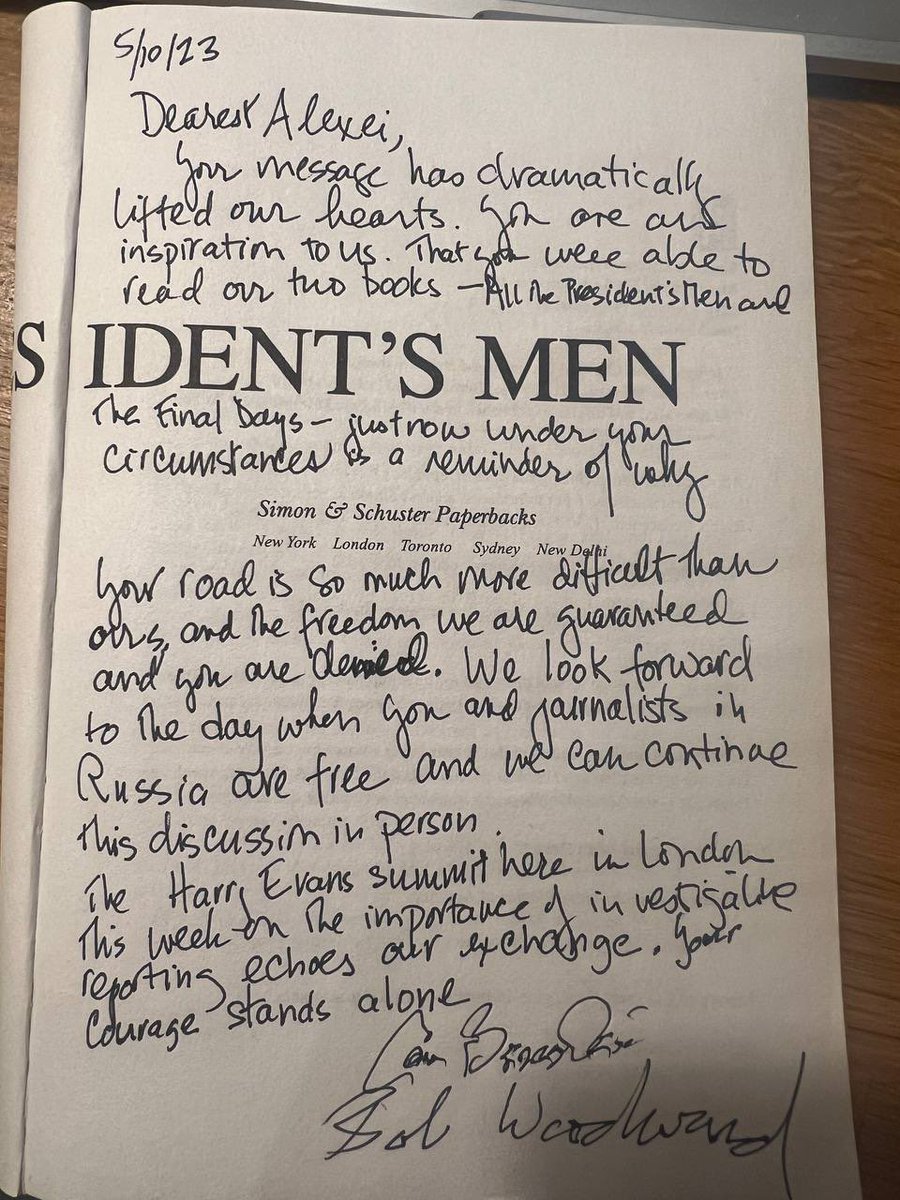 5/10/23
Dearest Alexei,
Your message has dramatically
lifted our hearts. You are an
inspiration to us. That you were able to
read our two books — All the President's Men and
S IDENT'S MEN
The Final Days — just now under your
circumstances is a reminder of why
Simon & Schuster Paperbacks
New York London Toronto Sydney New Delhi
your road is so much more difficult than
ours, and the freedom we are guaranteed
and you are denied. We look forward
to the day when you and journalists in
Russia are free and we can continue
this discussion in person.
The Harry Evans summit here in London
this week on the importance of investigative
reporting echoes our exchange. Your
courage stands alone
Carl Bernstein
Bob Woodward